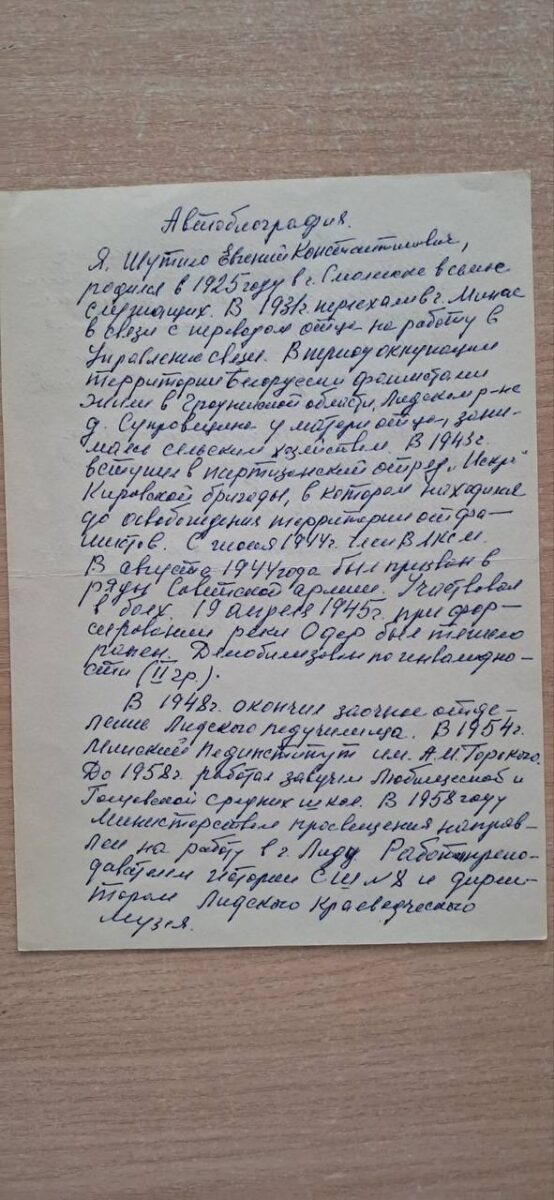 Автобиография.
Я, Шутило Евгений Константинович,
родился в 1925 году в г. Смоленске в семье
служащих. В 1931г. переехали в г. Минск
в связи с переводом отца на работу в
Управление связи. В период оккупации
территории Белоруссии фашистами
жили в Гродненской области, Лидском р-не
д. Супровщина у матери отца, зани-
маясь сельским хозяйством. В 1943г.
вступил в партизанский отряд „Искра"
Кировской бригады, в котором находился
до освобождения территории от фа-
шистов. С июля 1944г. член ВЛКСМ.
В августа 1944 года был призван в
ряды Советской армии. Участвовал
в боях. 19 апреля 1945г. при фор-
сировании реки Одер был тяжело
ранен. Демобилизован по инвалидно-
сти (II гр.).
В 1948г. окончил заочное отде-
ление Лидского педучилища. В 1954г.
Минский Пединститут им. А.М. Горького.
До 1958г. работал завучем Любищеской и
Гончарской средних школ. В 1958 году
Министерством просвещения направ-
лен на работу в г. Лиду. Работал препо-
давателем истории СШ №8 и дирек-
тором Лидского Краеведческого
музея.